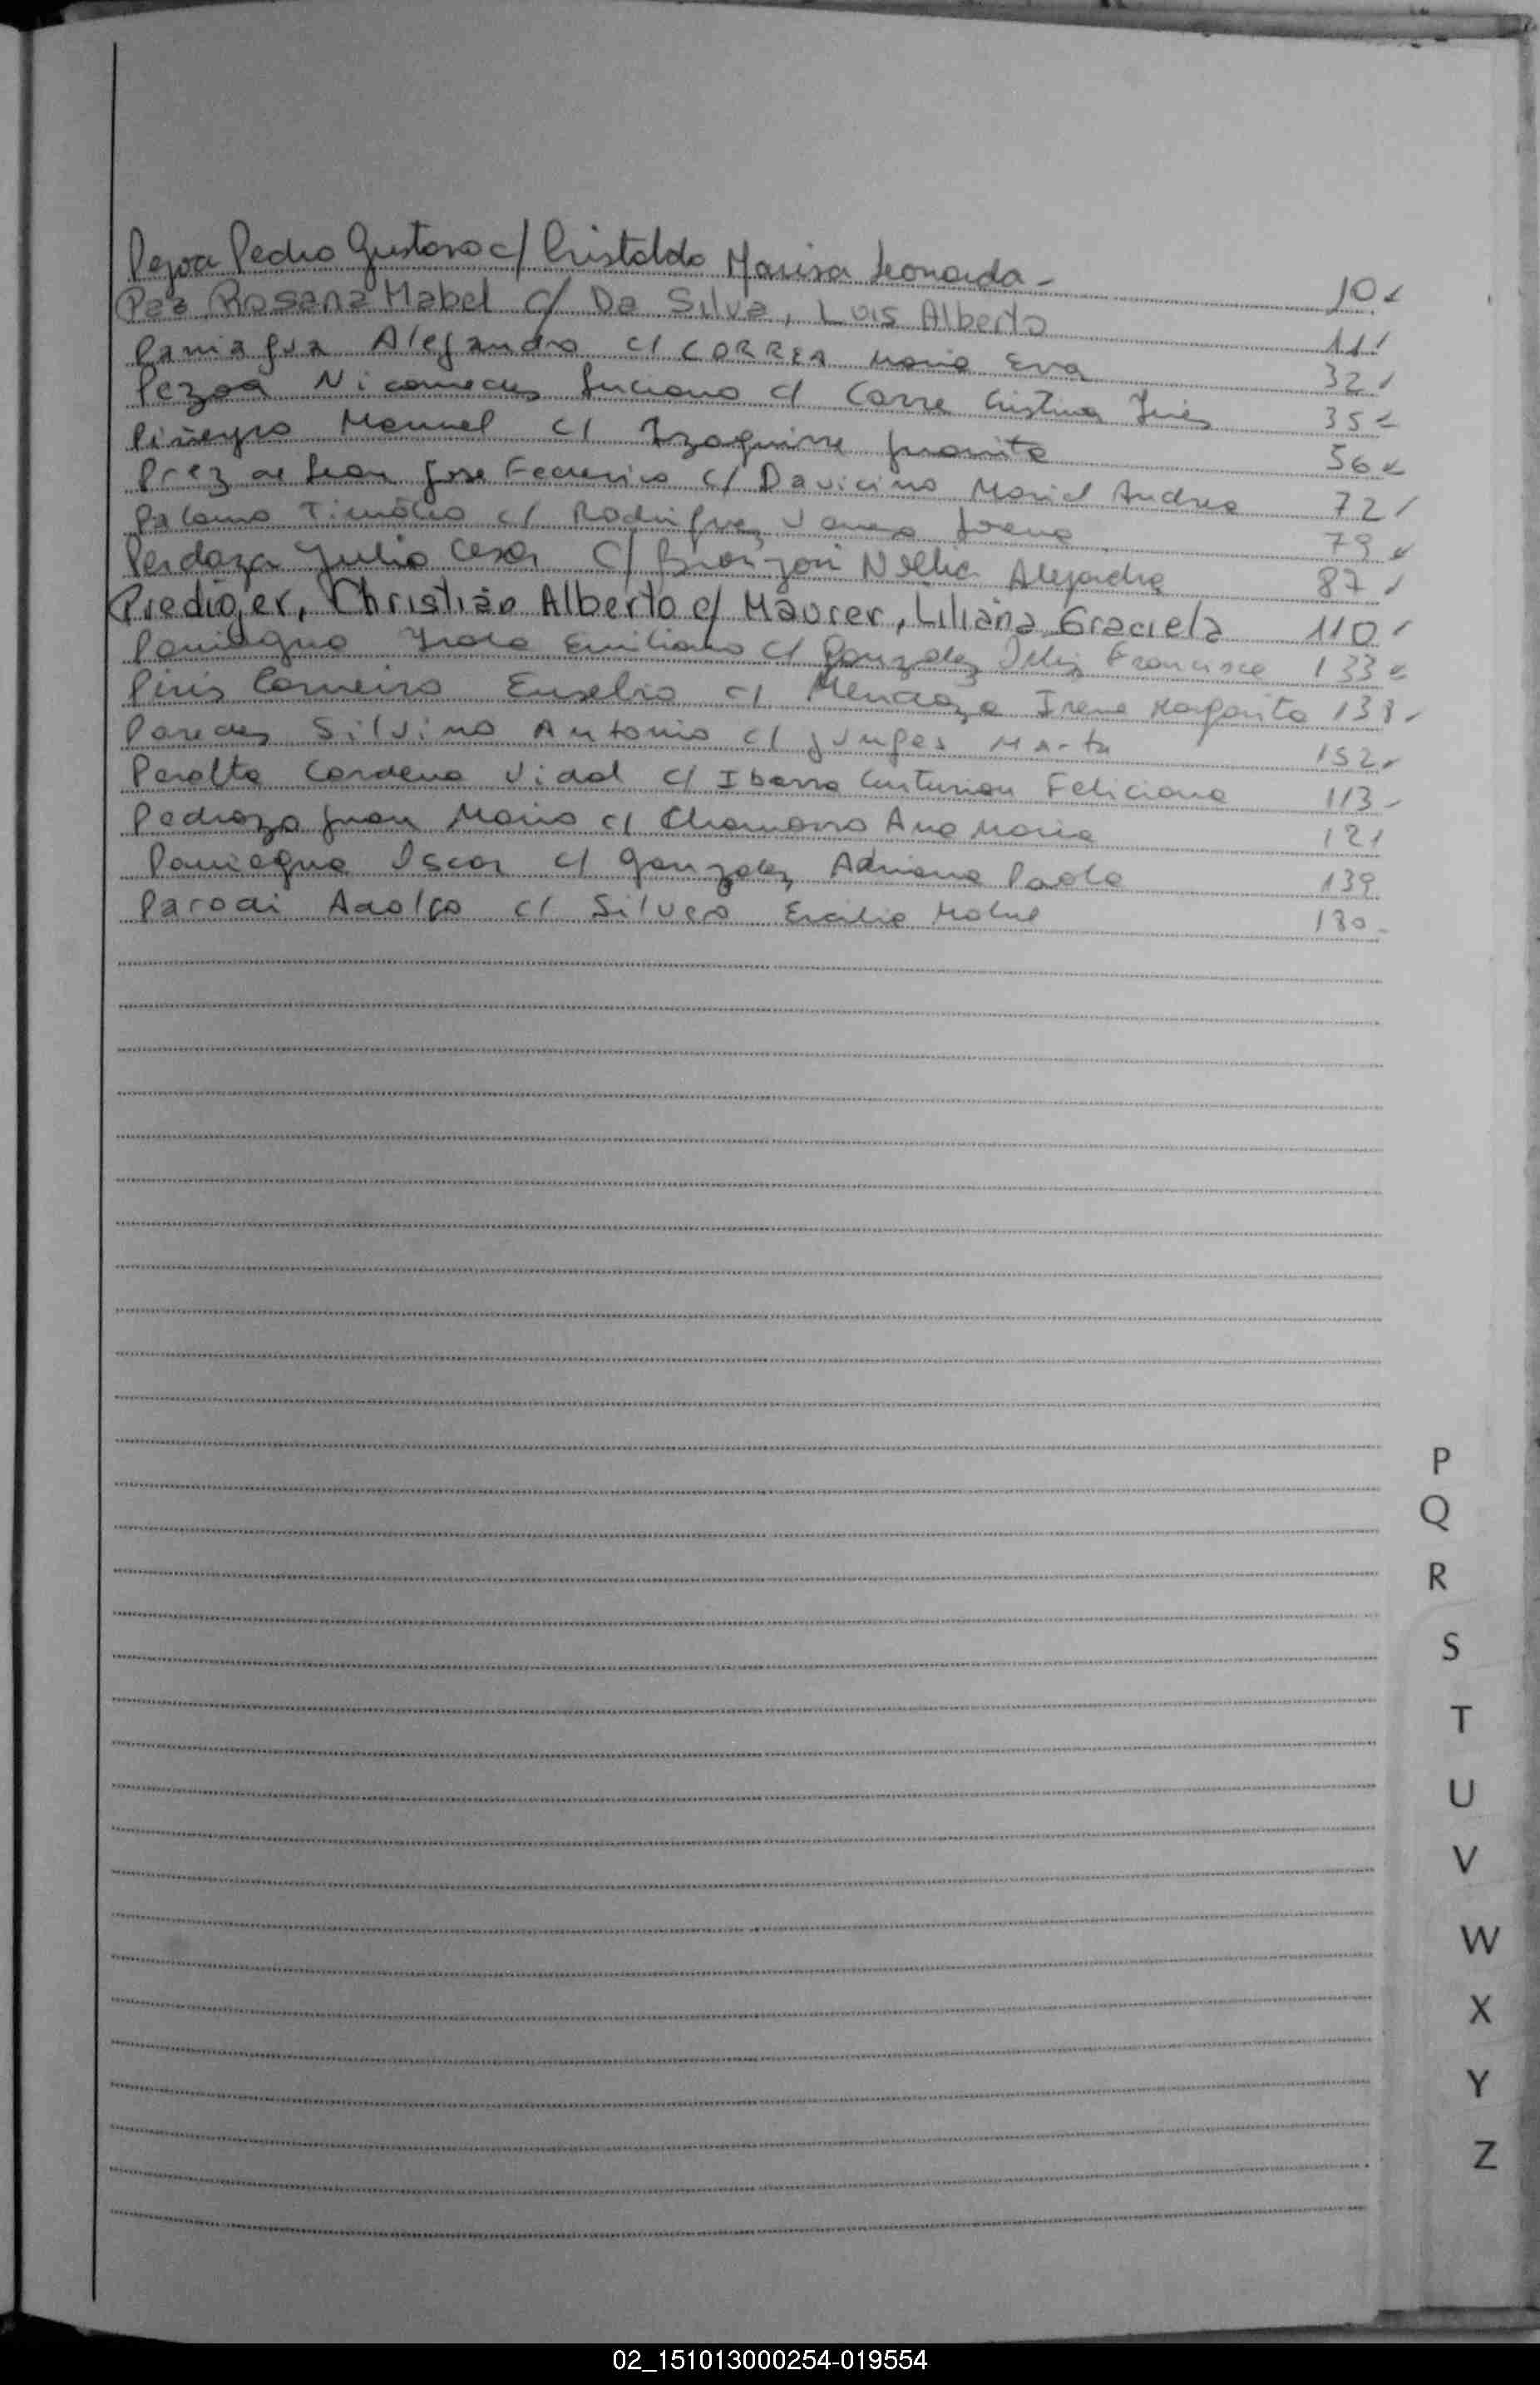 Pezoa Pedro Gustavo c/ Cristaldo Marisa Leonarda - 10
Paz Rosana Mabel c/ Da Silva, Luis Alberto 11
Paniagua Alejandro c/ CORREA Maria Eva 32
Pezoa Nicomedes Luciano c/ Carre Cristina Inés 35
Piñeyro Manuel c/ Izaguirre Juanita 56
Prez de Leon Jose Federico c/ Davicino Mariel Andrea 72
Palomo Timoteo c/ Rodriguez Lorena 79
Perdoza Julio Cesar c/ Nellia Alejandra 87
Prediger, Christian Alberto c/ Maurer, Liliana Graciela 110
Paniagua Emiliano c/ Gonzalez Francisca 133
Piris Carneiro Eusebio c/ Mendoza Irene Margarita 138
Paredes Silvino Antonio c/ Junges Marta 152
Peralta Cardena Vidal c/ Ibarra Centurion Feliciana 113
Pedrozo Juan Mario c/ Chamorro Ana Maria 121
Paniagua Oscar c/ Gonzalez Adriana Paola 139
Parodi Adolfo c/ Silvero Ercilia Mabel 180
P
Q
R
S
T
U
V
W
X
Y
Z
02_151013000254-019554